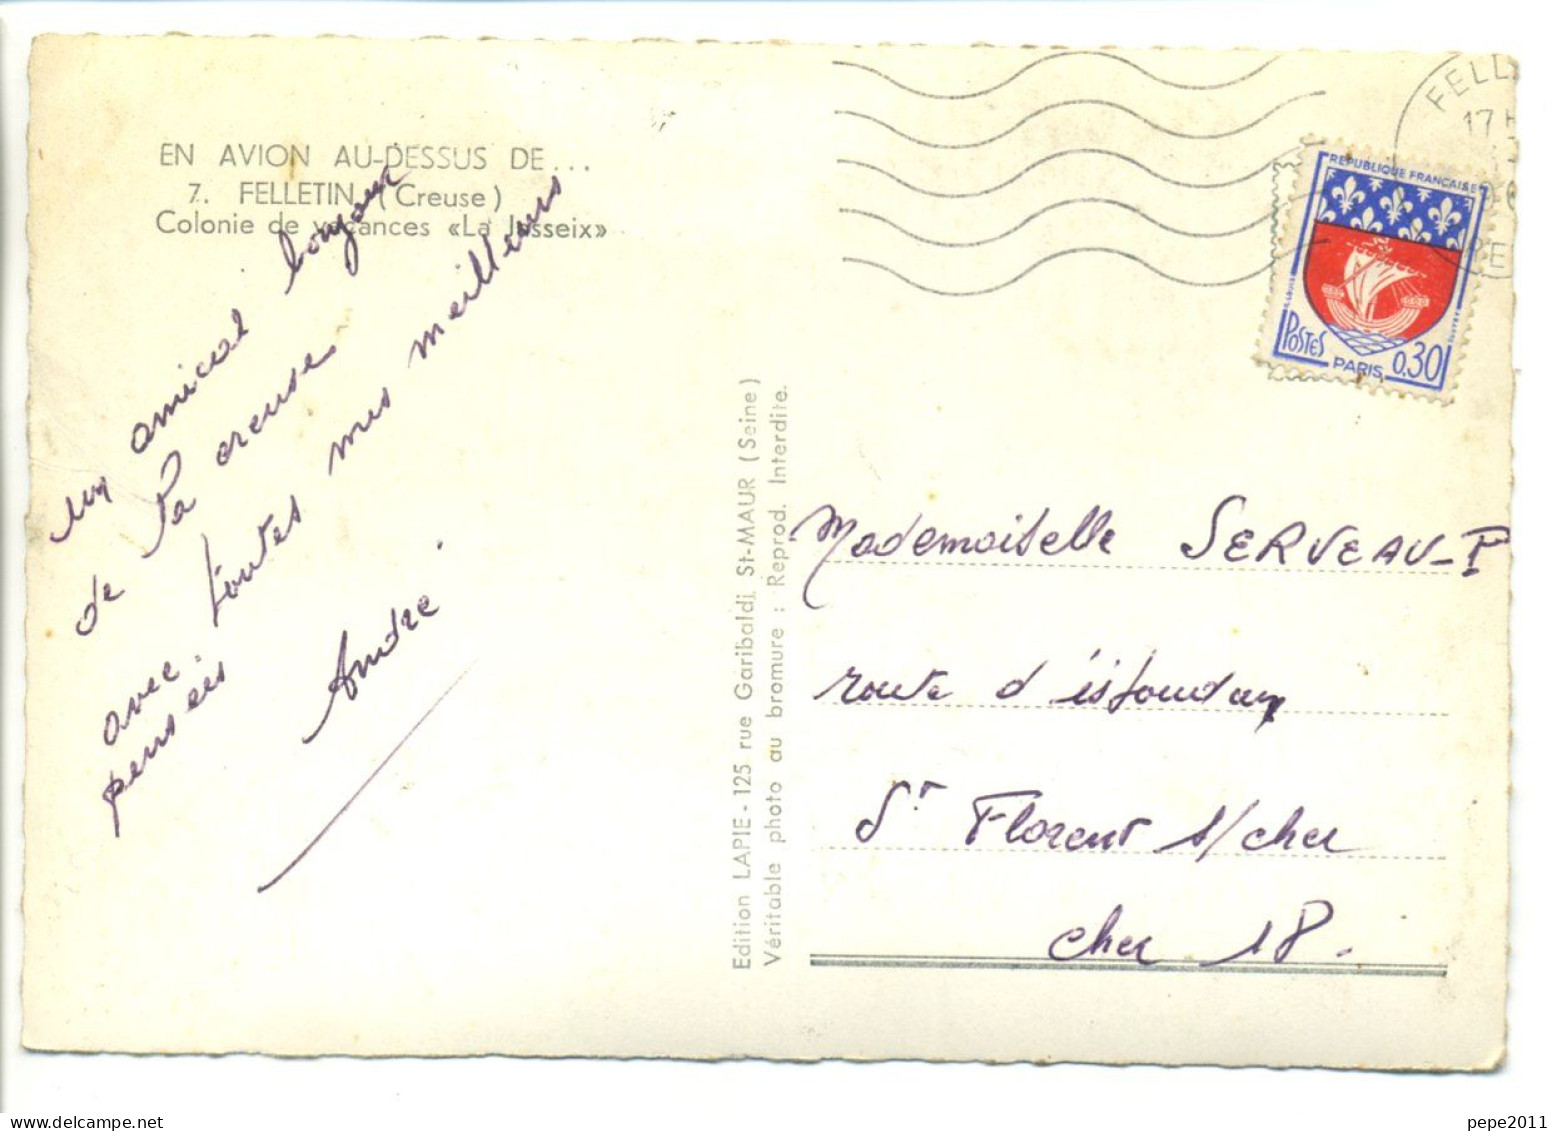 EN AVION AU-DESSUS DE...
7. FELLETIN (Creuse)
Colonie de vacances «La Jusseix»
un amical bonjour
de la creuse
avec toutes mes meilleurs
pensées
André
Edition LAPIE - 125 rue Garibaldi, St-MAUR (Seine)
Véritable photo au bromure : Reprod. Interdite.
FELL
17 H
REPUBLIQUE FRANÇAISE
POSTES
PARIS
0,30
Mademoiselle SERVEAU-P
route d'issoudun
St Florent s/cher
cher 18.
pepe2011